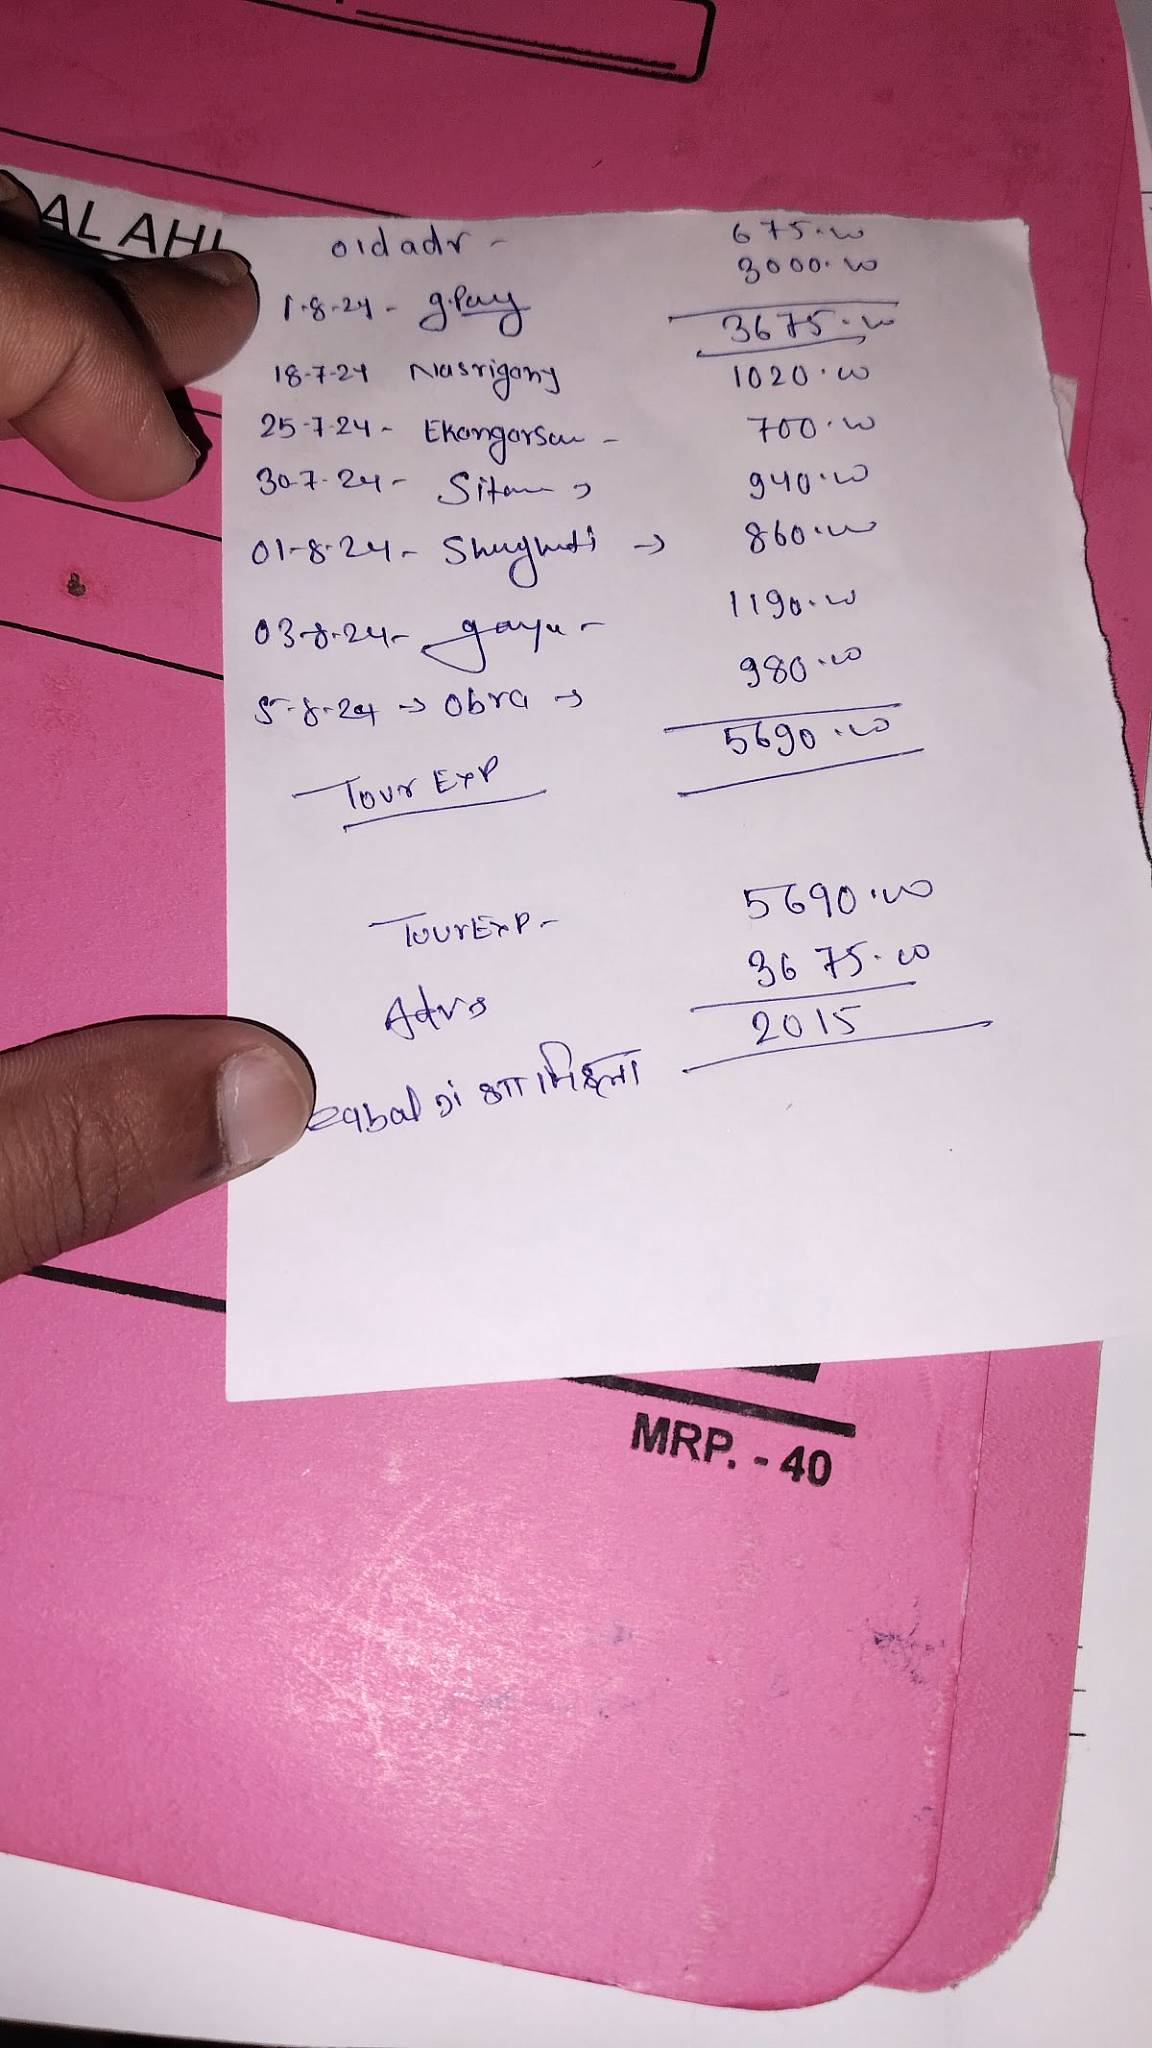 AL AHL
old adv - 675.00
3000.00
1-8-24 - g.Pay
3675.00
18-7-24 Nasrigang 1020.00
25-7-24 - Ekangarsan - 700.00
30-7-24 - 940.00
01-8-24 - → 860.00
03-8-24 - gaya - 1190.00
5-8-24 → Obra → 980.00
5690.00
Tour Exp
Tour Exp - 5690.00
Adv → 3675.00
2015
eqbal
MRP. - 40